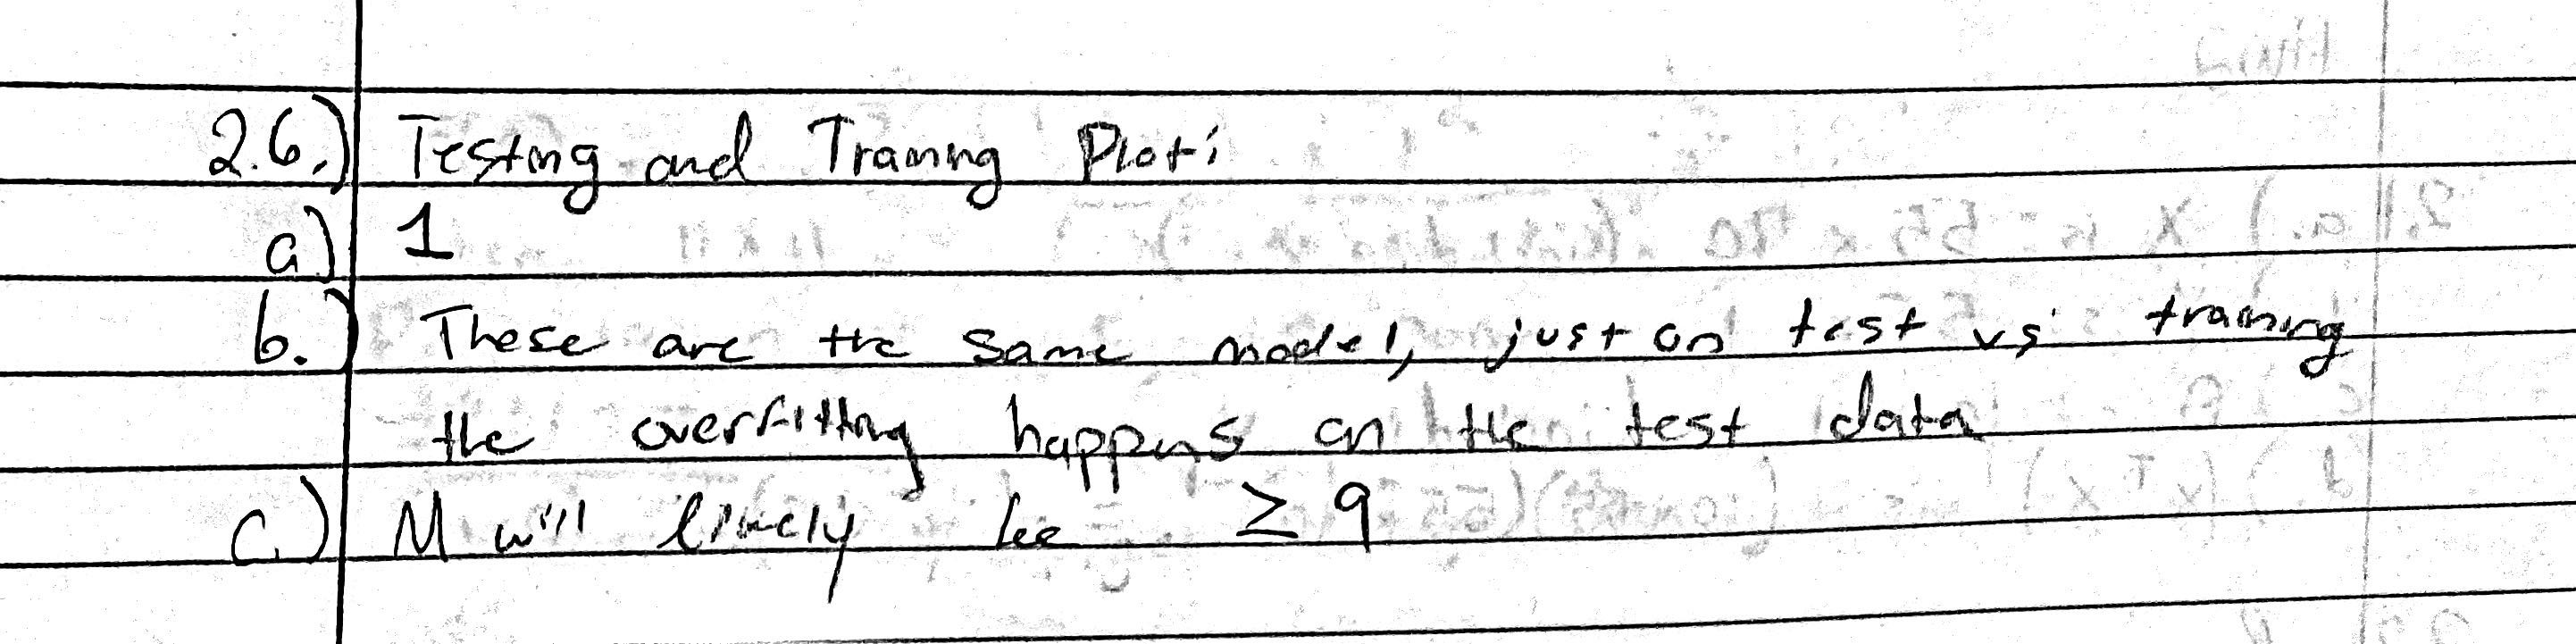 2.6.) Testing and Training Plot:
a) 1
b.) These are the same model, just on test vs training
the overfitting happens on the test data
c.) M will likely be ≥ 9